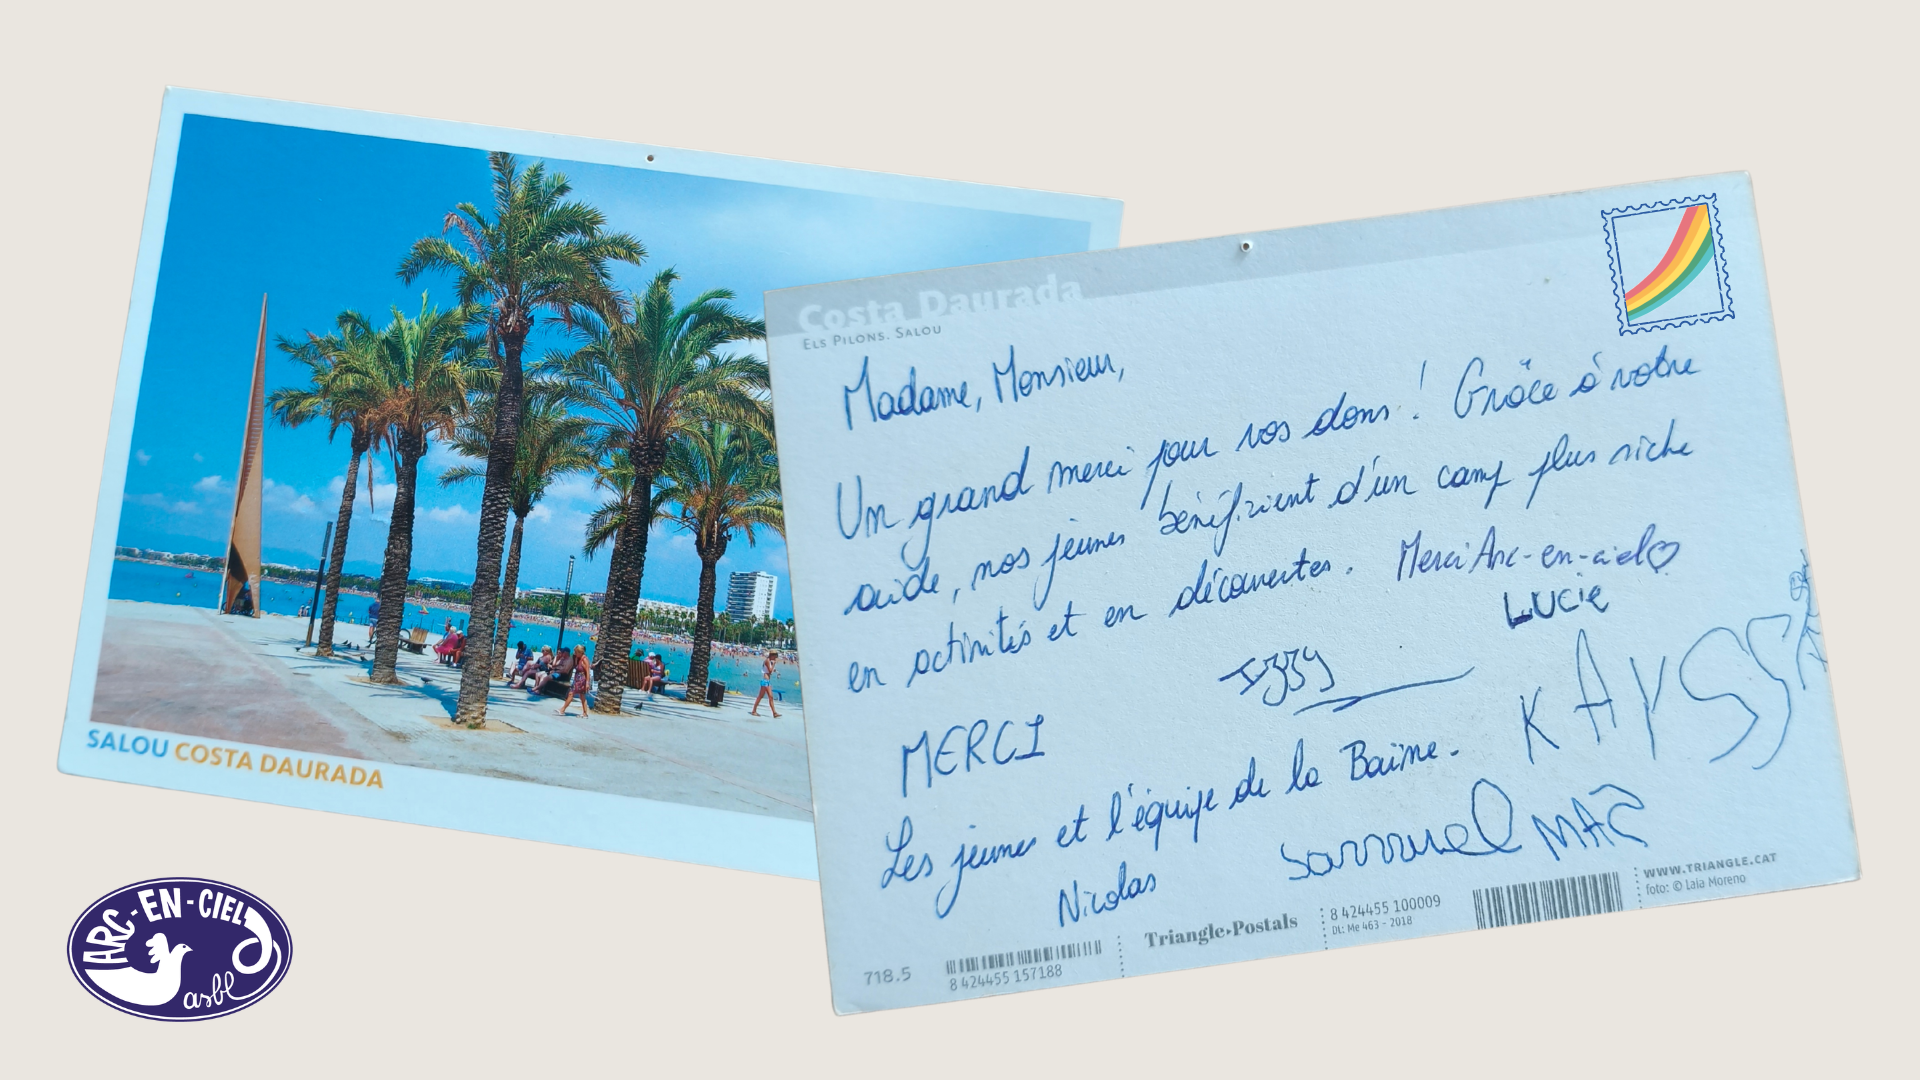 SALOU COSTA DAURADA
ARC-EN-CIEL
asbl
Costa Daurada
ELS PILONS. SALOU
Madame, Monsieur,
Un grand merci pour vos dons ! Grâce à votre
aide, nos jeunes bénéficient d'un camp plus riche
en activités et en découvertes. Merci Arc-en-ciel♡
Lucie
Izzy
KAYSS
MERCI
Les jeunes et l'équipe de la
Samuel
Nicolas
718.5
8 424455 157188
Triangle▸Postals
8 424455 100009
DL: Me 463 - 2018
WWW.TRIANGLE.CAT
foto: © Laia Moreno